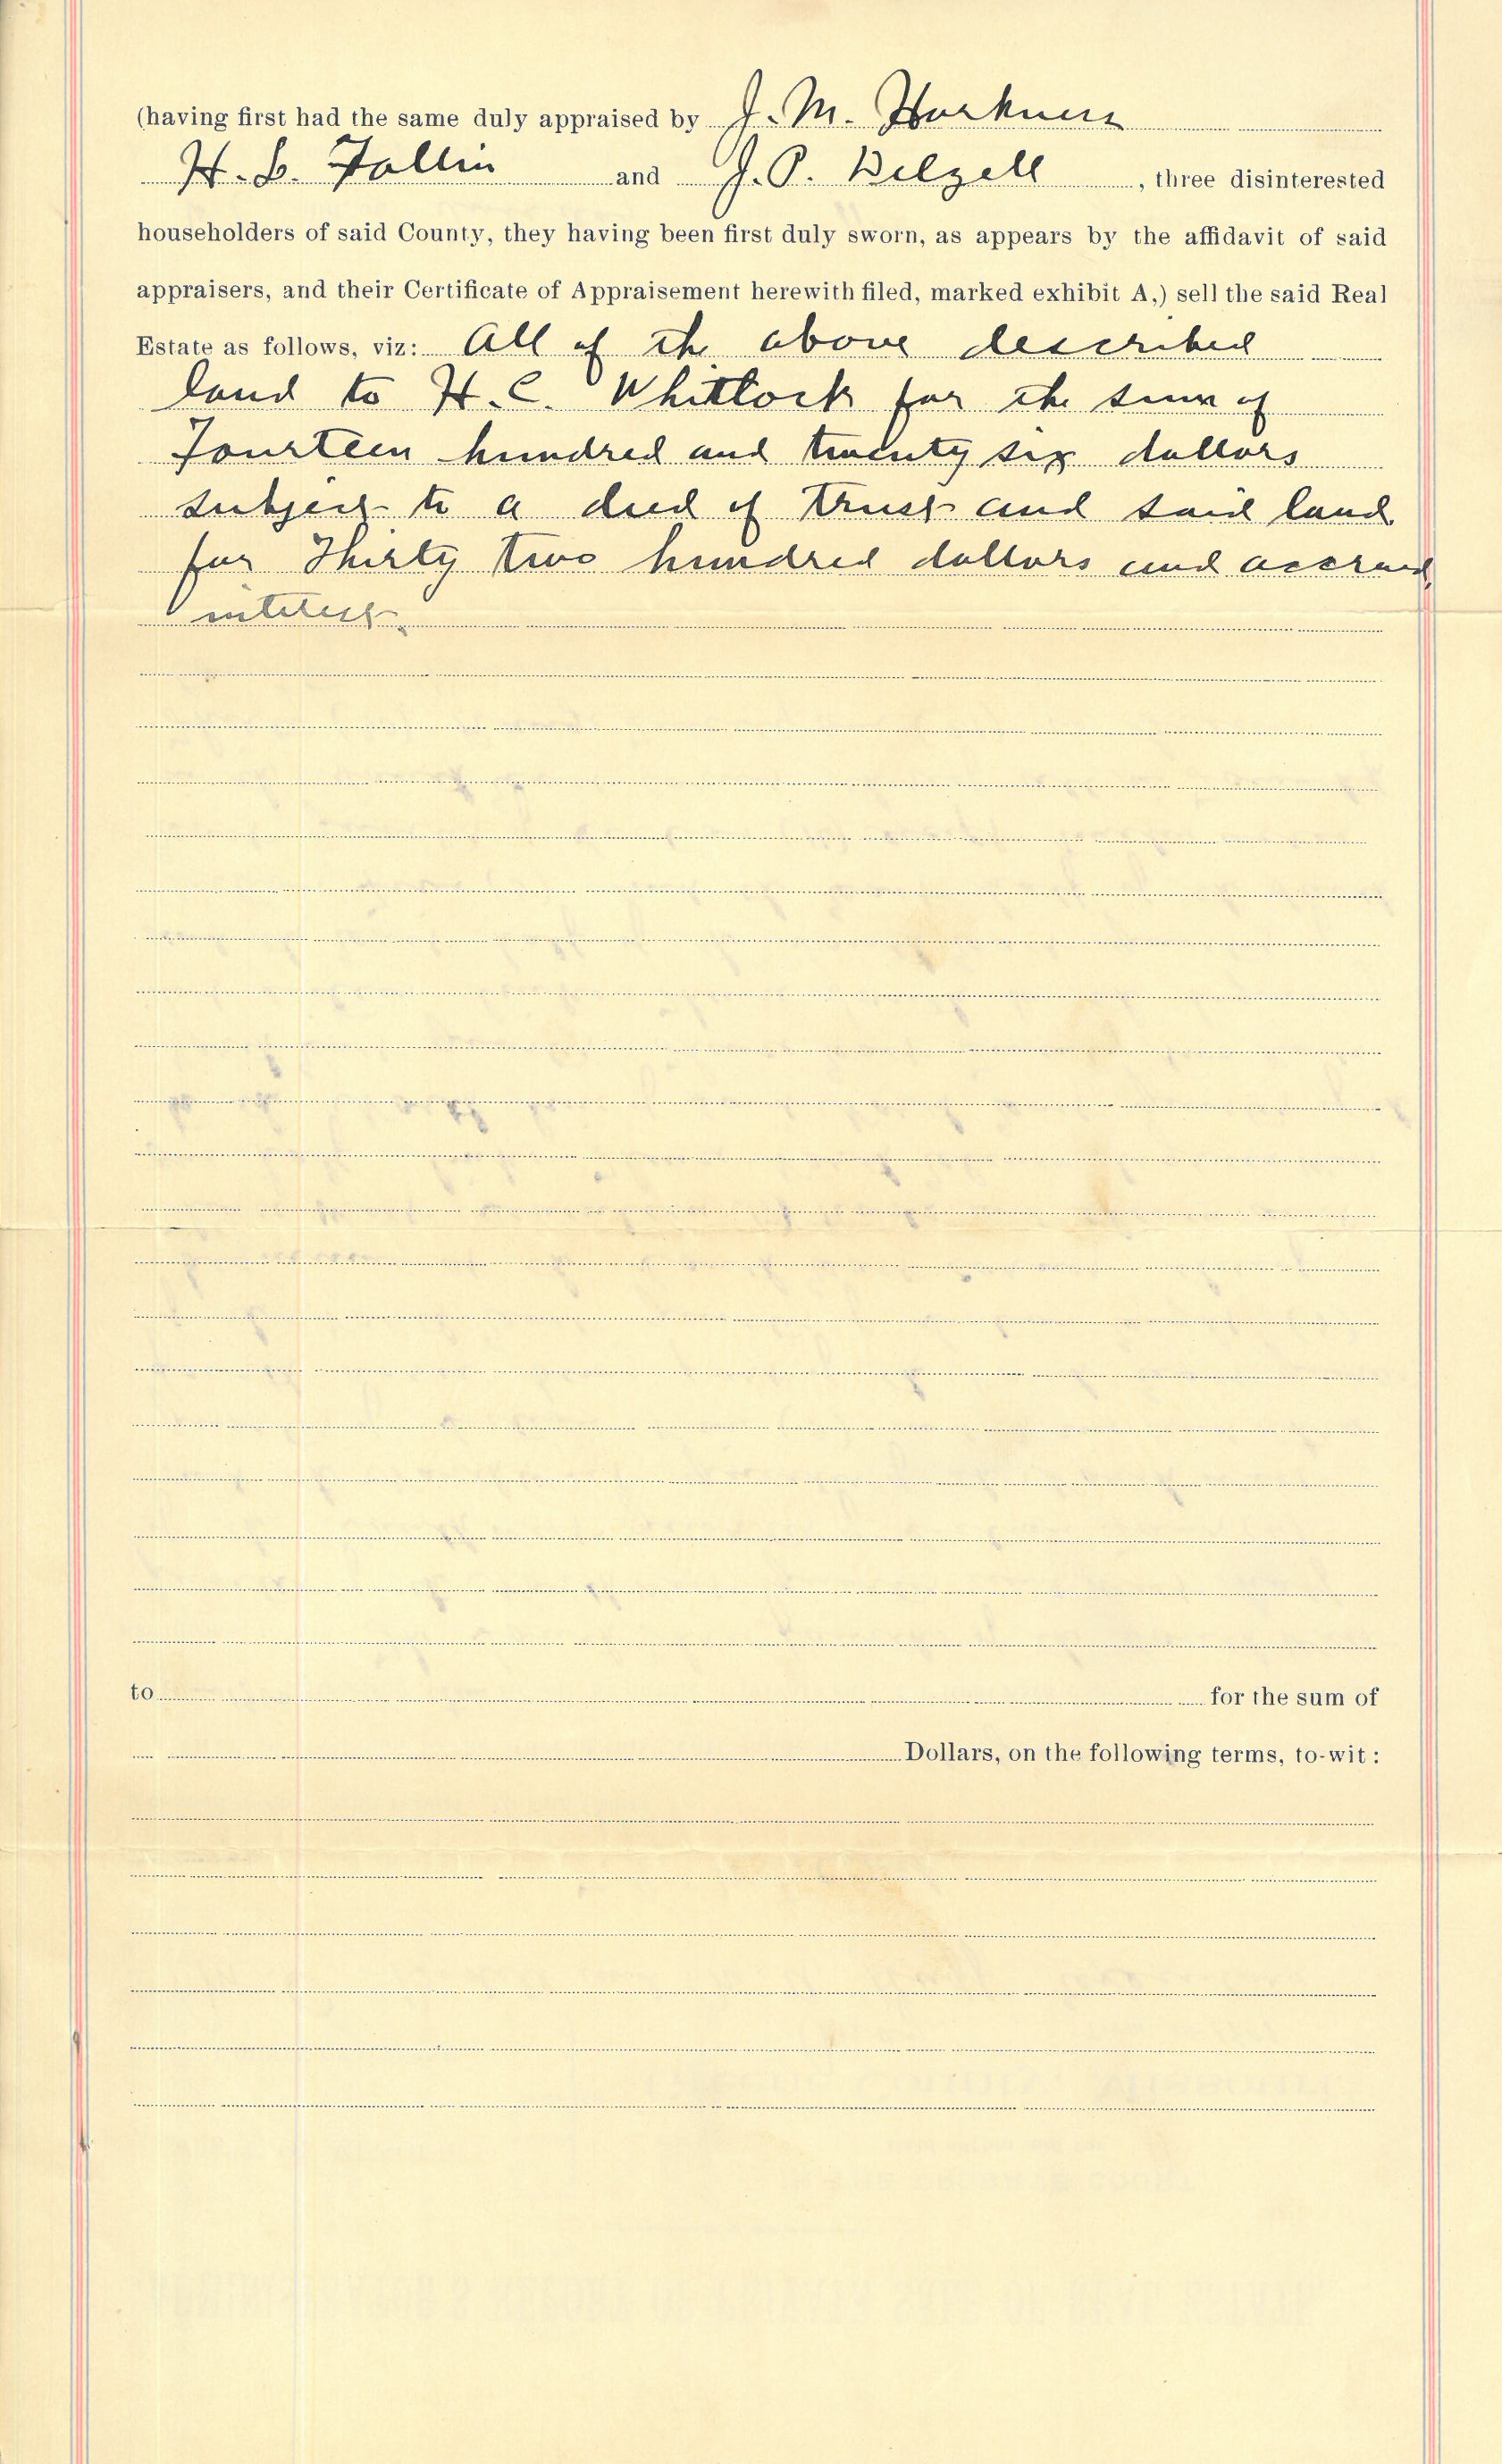 (having first had the same duly appraised by J. M. Harkness
H. L. Fallin and J. P. Delzell, three disinterested
householders of said County, they having been first duly sworn, as appears by the affidavit of said
appraisers, and their Certificate of Appraisement herewith filed, marked exhibit A,) sell the said Real
Estate as follows, viz: All of the above described
land to H. C. Whitlock for the sum of
Fourteen hundred and twenty six dollars
subject to a deed of trust and said land
for Thirty two hundred dollars and accrued
interest.
to for the sum of
Dollars, on the following terms, to-wit: